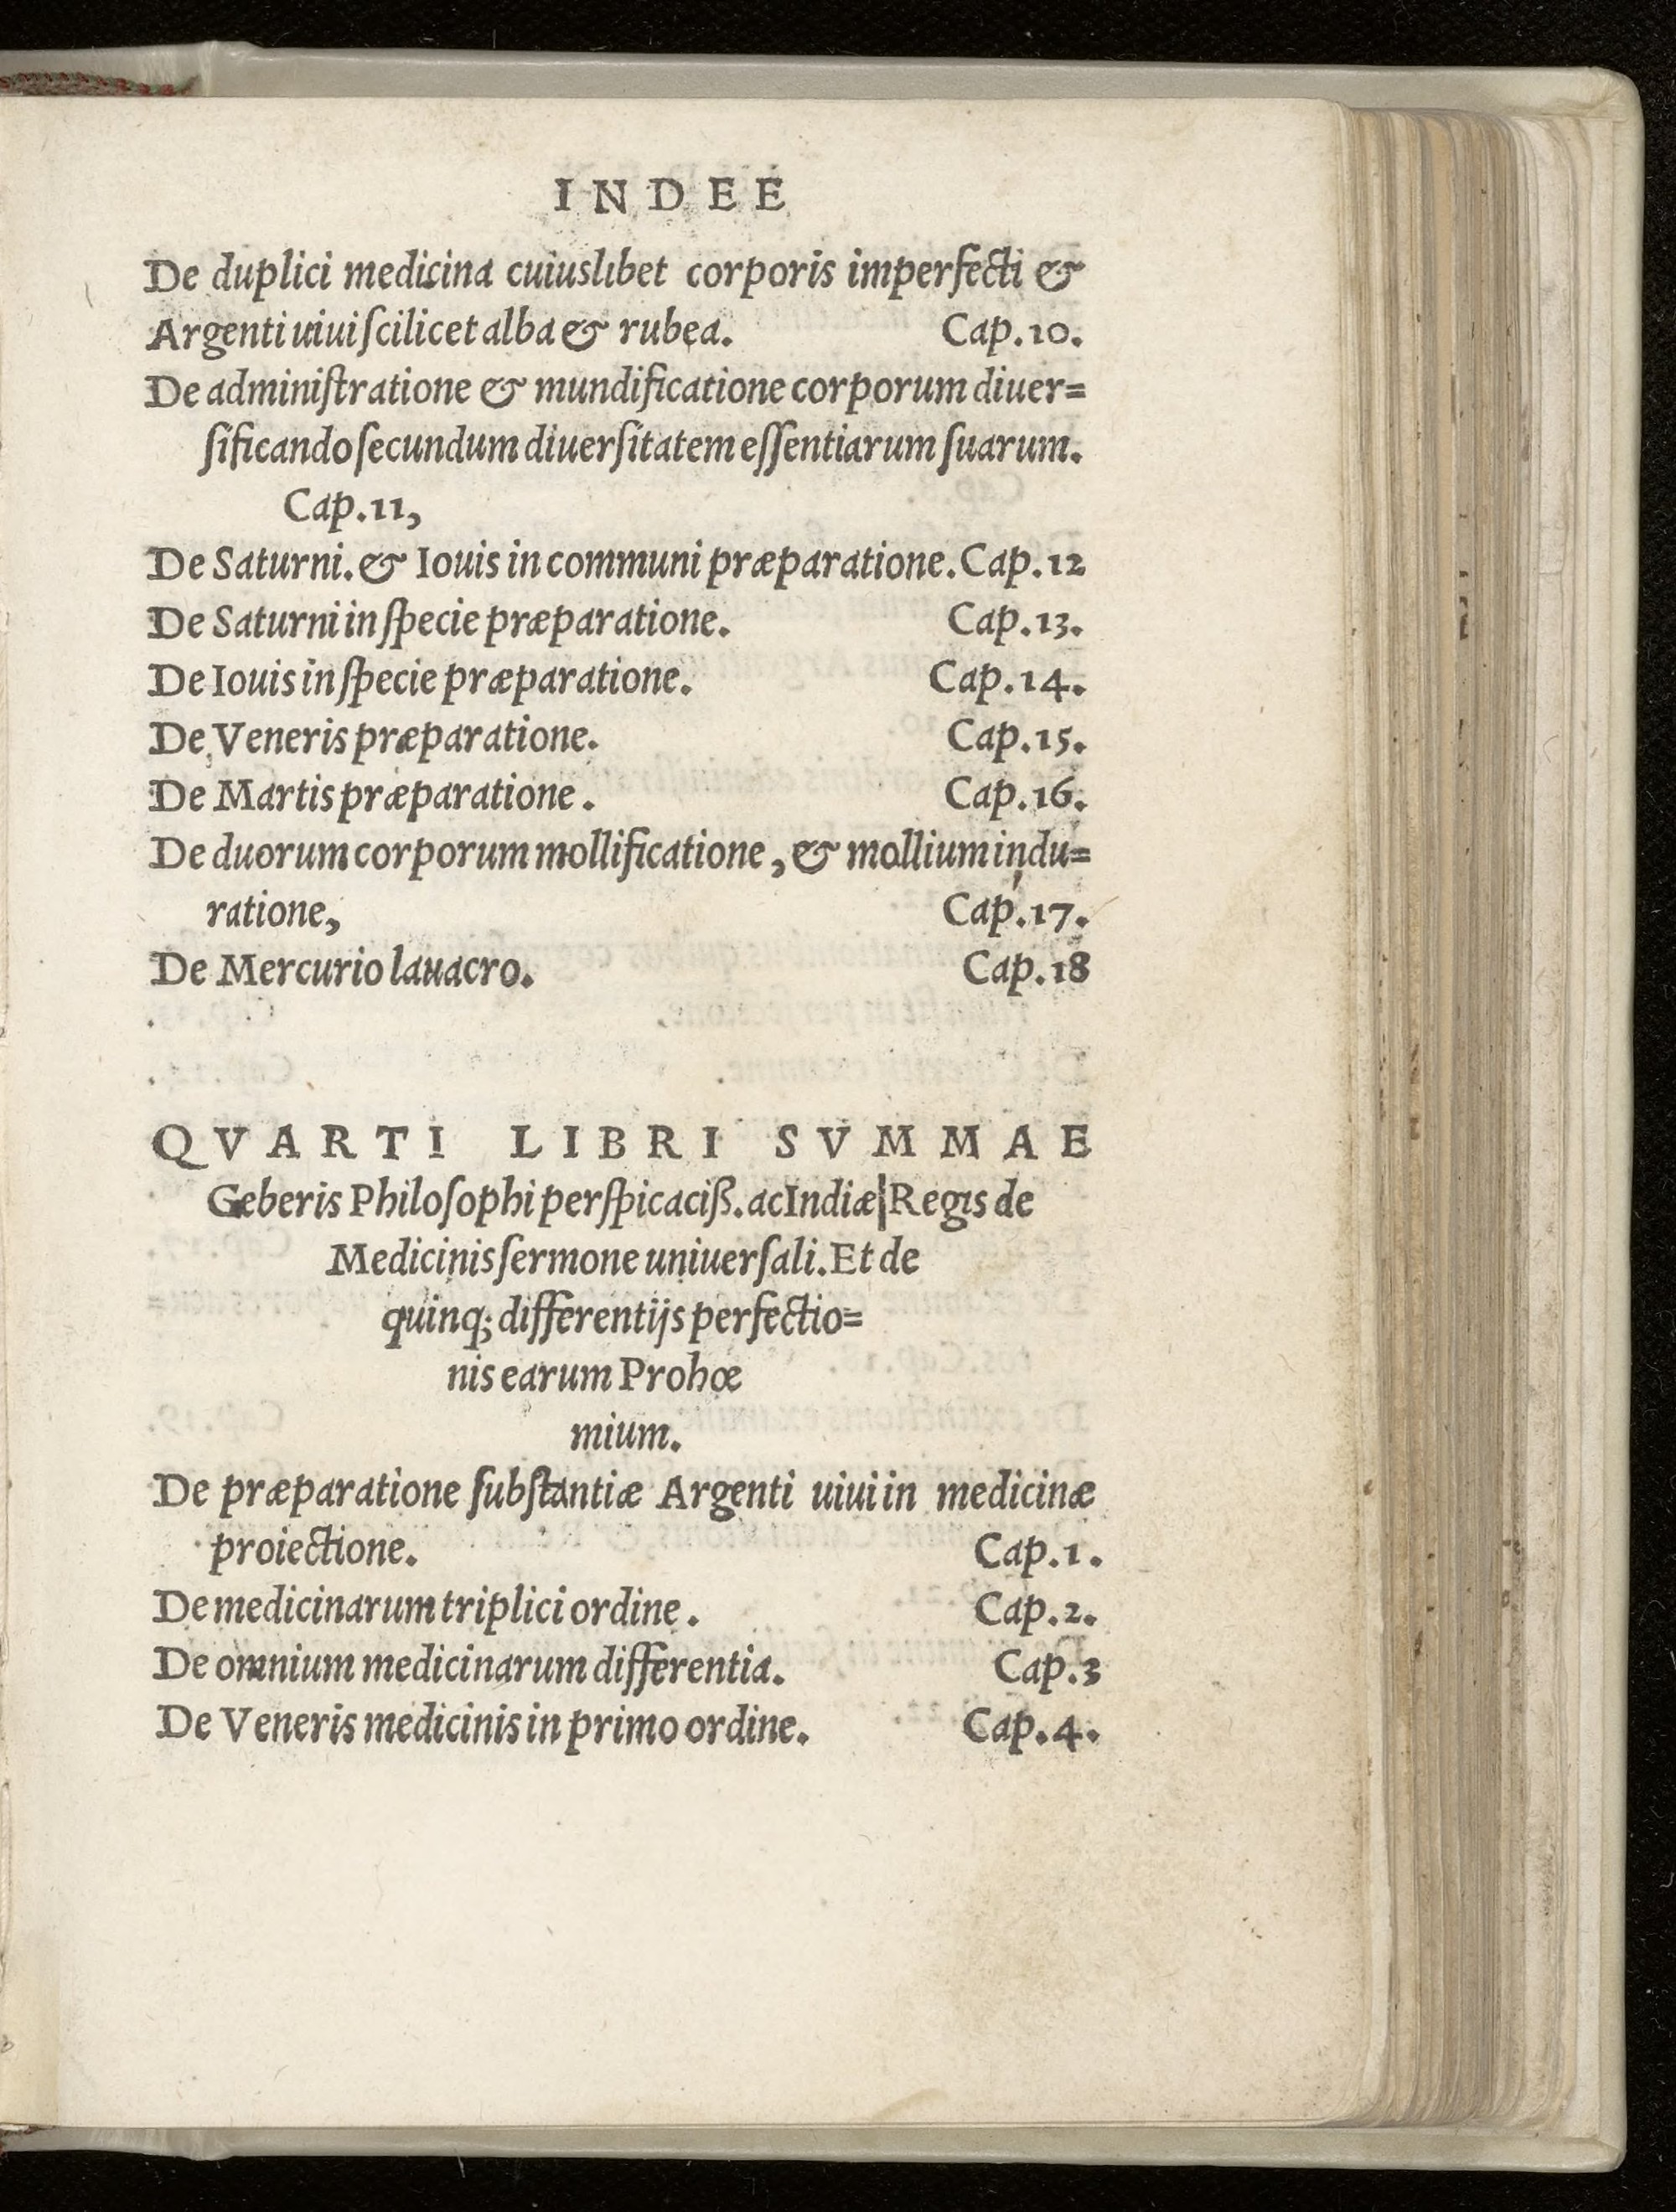 INDEE
De duplici medicina cuiuslibet corporis imperfecti &
Argenti uiui ſcilicet alba & rubea. Cap.10.
De adminiſtratione & mundificatione corporum diuer=
ſificando ſecundum diuerſitatem eſſentiarum ſuarum.
Cap.11,
De Saturni. & Iouis in communi præparatione. Cap.12
De Saturni in ſpecie præparatione. Cap.13.
De Iouis in ſpecie præparatione. Cap.14.
De Veneris præparatione. Cap.15.
De Martis præparatione. Cap.16.
De duorum corporum mollificatione, & mollium indu=
ratione, Cap.17.
De Mercurio lauacro. Cap.18
QVARTI LIBRI SVMMAE
Geberis Philoſophi perſpicaciß. ac Indiæ|Regis de
Medicinis ſermone uniuerſali. Et de
quinq; differentijs perfectio=
nis earum Prohœ
mium.
De præparatione ſubſtantiæ Argenti uiui in medicinæ
proiectione. Cap.1.
De medicinarum triplici ordine. Cap.2.
De omnium medicinarum differentia. Cap.3
De Veneris medicinis in primo ordine. Cap.4.